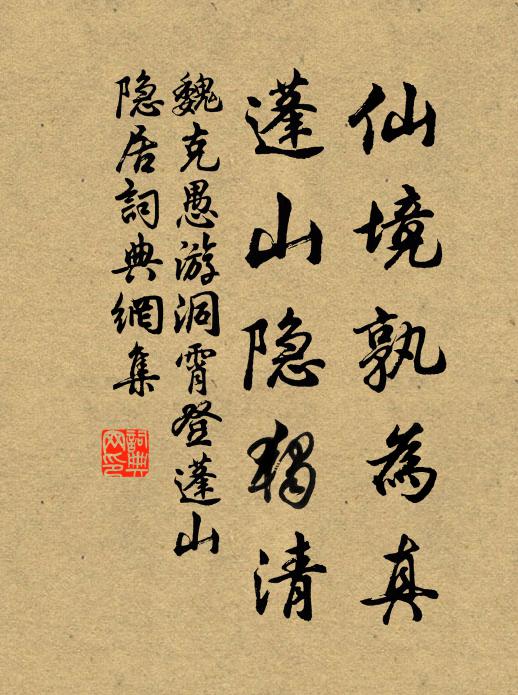 仙境孰為真
蓬山隐獨清
魏克愚游洞霄登蓬山
隐居詞典網集
詞典网印